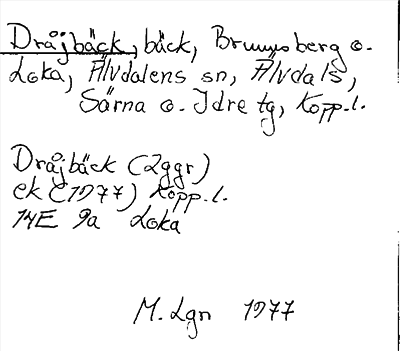 Dråjbäck, bäck, Brunnsberg o.
Loka, Älvdalens sn, Älvdals,
Särna o. Idre tg, Kopp.l.
Dråjbäck (2ggr)
ek (1977) Kopp.l.
14E 9a Loka
M. Lgn 1977